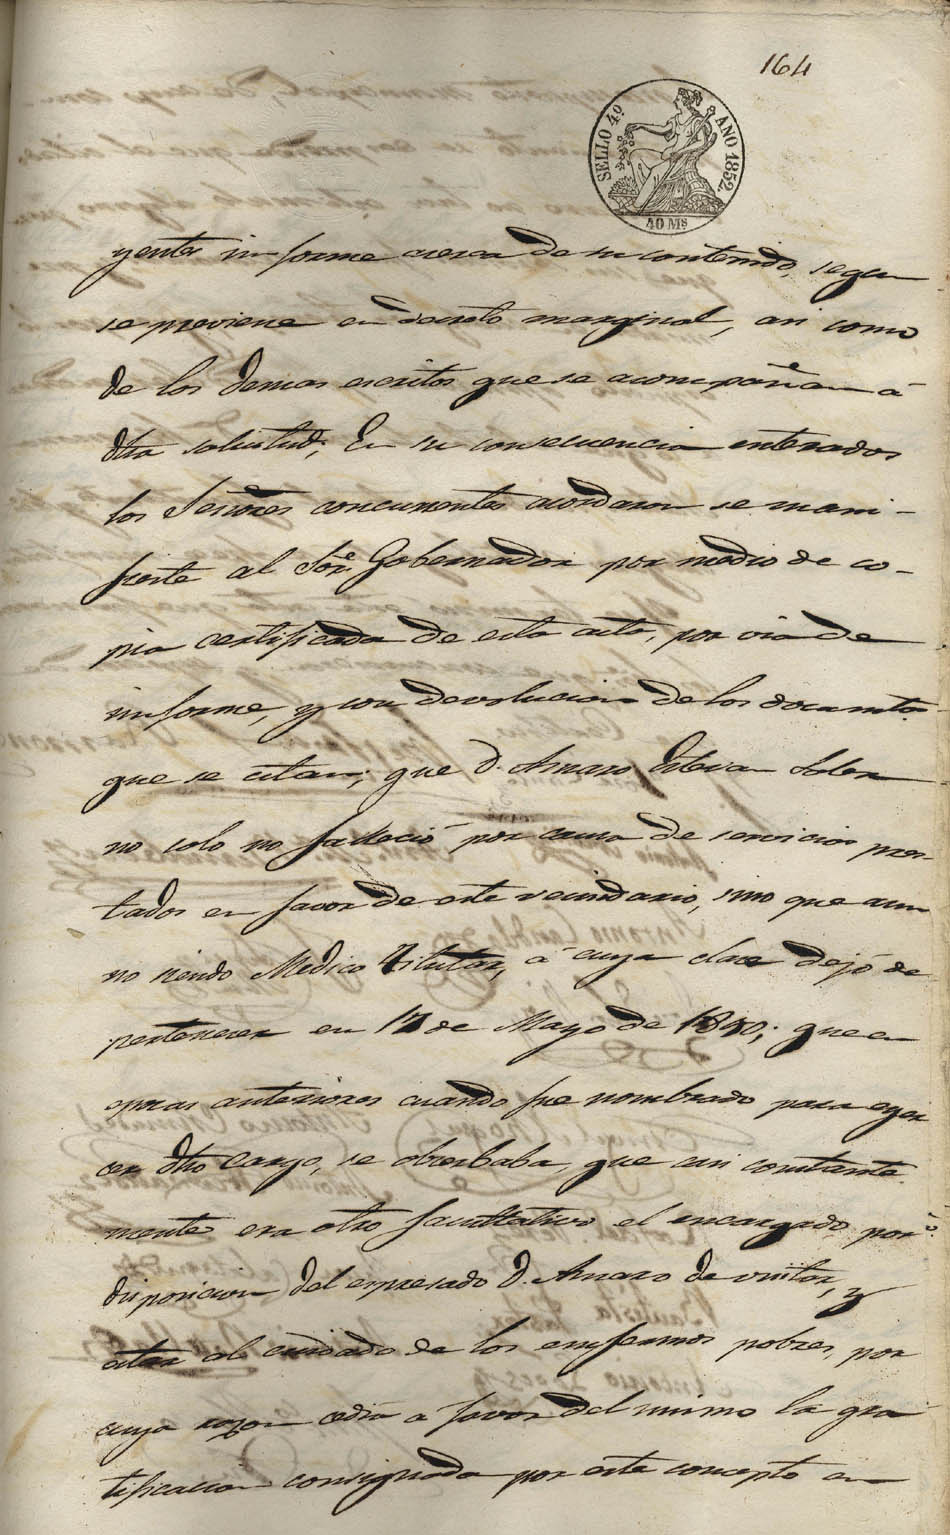 164
SELLO 4º AÑO 1852.
40 Ms
yente informe acerca de su contenido, segun
se previene en decreto marginal, asi como
de los demas escritos que se acompañan á
dha solicitud; En su consecuencia enterados
los Señores concurrentes acordaron se mani-
fieste al Sor. Gobernador por medio de co-
pia certificada de esta acta, por via de
informe, y con devolucion de los documtos
que se citan; que D. Amaro Esteban Soler
no solo no falleció por causa de servicios pres-
tados en favor de este vecindario, sino que aun
no siendo Medico Titular, á cuya clase dejó de
pertenecer en 17 de Mayo de 1850; que en
epocas anteriores cuando fue nombrado para eger
cer dho cargo, se obserbaba, que casi constante
mente era otro facultativo el encargado por
disposicion del espresado D. Amaro de visitar, y
estar al cuidado de los enfermos pobres, por
cuya razon cedia a favor del mismo la gra
tificacion consignada por este concepto en